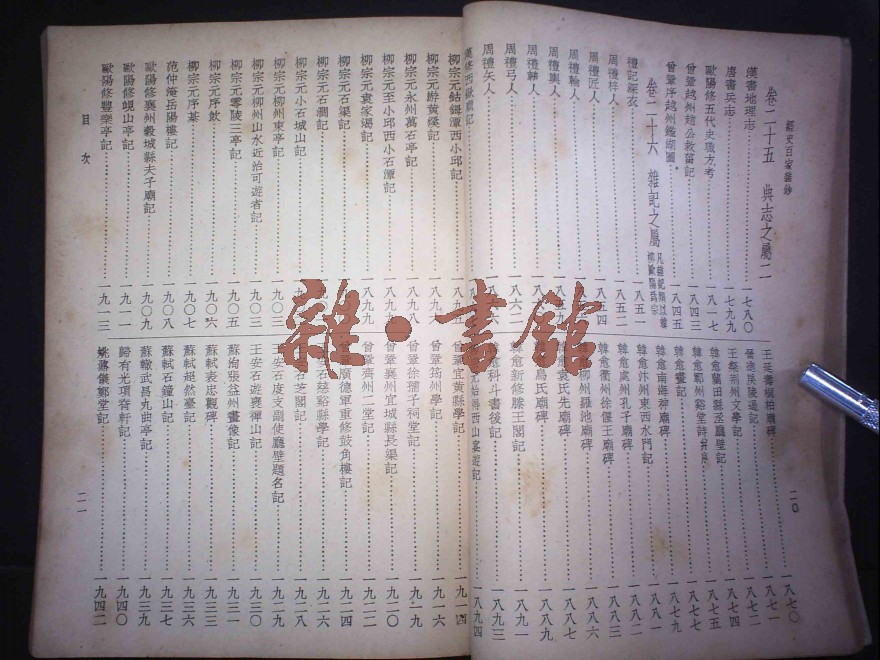 經史百家雜鈔
卷二十五 典志之屬二
漢書地理志……一七八〇
唐書兵志……一七九九
歐陽修五代史職方考……一八一七
曾鞏越州趙公救菑記……一八四三
曾鞏序越州鑑湖圖……一八四五
卷二十六 雜記之屬 凡雜記類以韓柳歐陽爲宗
禮記深衣……一八五一
周禮梓人……一八五二
周禮匠人……一八五四
周禮輪人……一八
周禮輿人……一八
周禮輈人……一八
周禮弓人……一八六二
周禮矢人……一八
漢修西嶽廟記
王延壽桐柏廟碑……一八七〇
晉造戾陵遏記……一八七一
王粲荊州文學記……一八七二
韓愈藍田縣丞廳壁記……一八七四
韓愈鄆州谿堂詩并序……一八七五
韓愈畫記……一八七七
韓愈南海神廟碑……一八七九
韓愈汴州東西水門記……一八八一
韓愈處州孔子廟碑……一八八二
韓愈衢州徐偃王廟碑……一八八三
韓愈柳州羅池廟碑……一八八六
韓愈袁氏先廟碑……一八八七
韓愈烏氏廟碑……一八八九
韓愈新修滕王閣記……一八九一
韓愈科斗書後記……一八九三
柳宗元始得西山宴遊記……一八九四
二〇
柳宗元鈷鉧潭西小邱記……一八九五
柳宗元游黃溪記……一八九
柳宗元永州萬石亭記……一八九
柳宗元至小邱西小石潭記……一八九八
柳宗元袁家渴記……一八九九
柳宗元石渠記……一九
柳宗元石澗記……一九
柳宗元小石城山記……一九
柳宗元柳州東亭記……一九〇
柳宗元柳州山水近治可遊者記……一九〇三
柳宗元零陵三亭記……一九〇五
柳宗元序飲……一九〇六
柳宗元序棊……一九〇七
范仲淹岳陽樓記……一九〇八
歐陽修襄州穀城縣夫子廟記……一九〇九
歐陽修峴山亭記……一九一一
歐陽修豐樂亭記……一九一三
曾鞏宜黃縣學記……一九一四
曾鞏筠州學記……一九一六
曾鞏徐孺子祠堂記……一九一九
曾鞏襄州宜城縣長渠記……一九二〇
曾鞏齊州二堂記……一九二二
曾鞏廣德軍重修鼓角樓記……一九二四
王安石慈谿縣學記……一九二六
王安石芝閣記……一九二八
王安石度支副使廳壁題名記……一九二九
王安石遊襃禪山記……一九三〇
蘇洵張益州畫像記……一九三一
蘇軾表忠觀碑……一九三三
蘇軾超然臺記……一九三六
蘇軾石鐘山記……一九三七
蘇轍武昌九曲亭記……一九三九
歸有光項脊軒記……一九四〇
姚鼐儀鄭堂記……一九四二
目次
二一
雜·書館